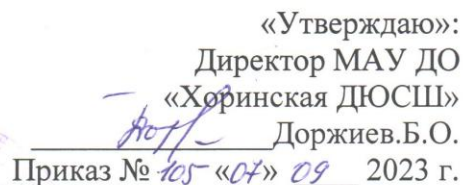 «Утверждаю»:
Директор МАУ ДО
«Хоринская ДЮСШ»
Доржиев.Б.О.
Приказ № 105 «07» 09 2023 г.